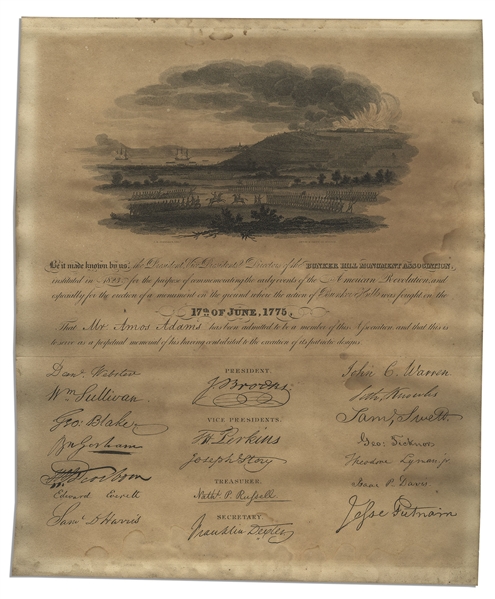 Be it made known by us, the President, Vice Presidents & Directors of the BUNKER HILL MONUMENT ASSOCIATION,
instituted in 1823 for the purpose of commemorating the early events of the American Revolution, and
especially for the erection of a monument on the ground where the action of Bunker Hill was fought on the
17th OF JUNE, 1775,
That Mr Amos Adams has been admitted to be a member of this Association and that this is
to serve as a perpetual memorial of his having contributed to the execution of its patriotic designs.
Danl. Webster
Wm Sullivan
Geo: Blake
Wm Gorham
Edward Everett
Saml D Harris
PRESIDENT.
J. Brooks.
VICE PRESIDENTS.
T H Perkins
Joseph Story
TREASURER.
Nathl. P. Russell.
SECRETARY.
Franklin Dexter
John C. Warren
Seth Knowles
Saml Swett
Geo: Ticknor
Theodore Lyman, jr
Isaac P. Davis
Jesse Putnam